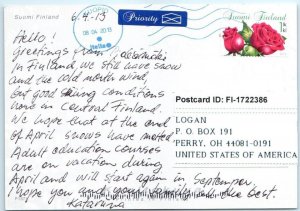 Suomi Finland
6.4.13
Priority
08 04 2013
Hello
Suomi Finland
1
lk
kl
Hello!
Greetings from
in Finland, we still have snow
and the cold north wind,
but good skiing conditions
here in Central Finland.
We hope that at the end
of April snows have melted
Adult education courses
are on vacation during
April and will start again in September.
I hope you and your family all the best.
Katariina
Postcard ID: FI-1722386
LOGAN
P.O. BOX 191
PERRY, OH 44081-0191
UNITED STATES OF AMERICA